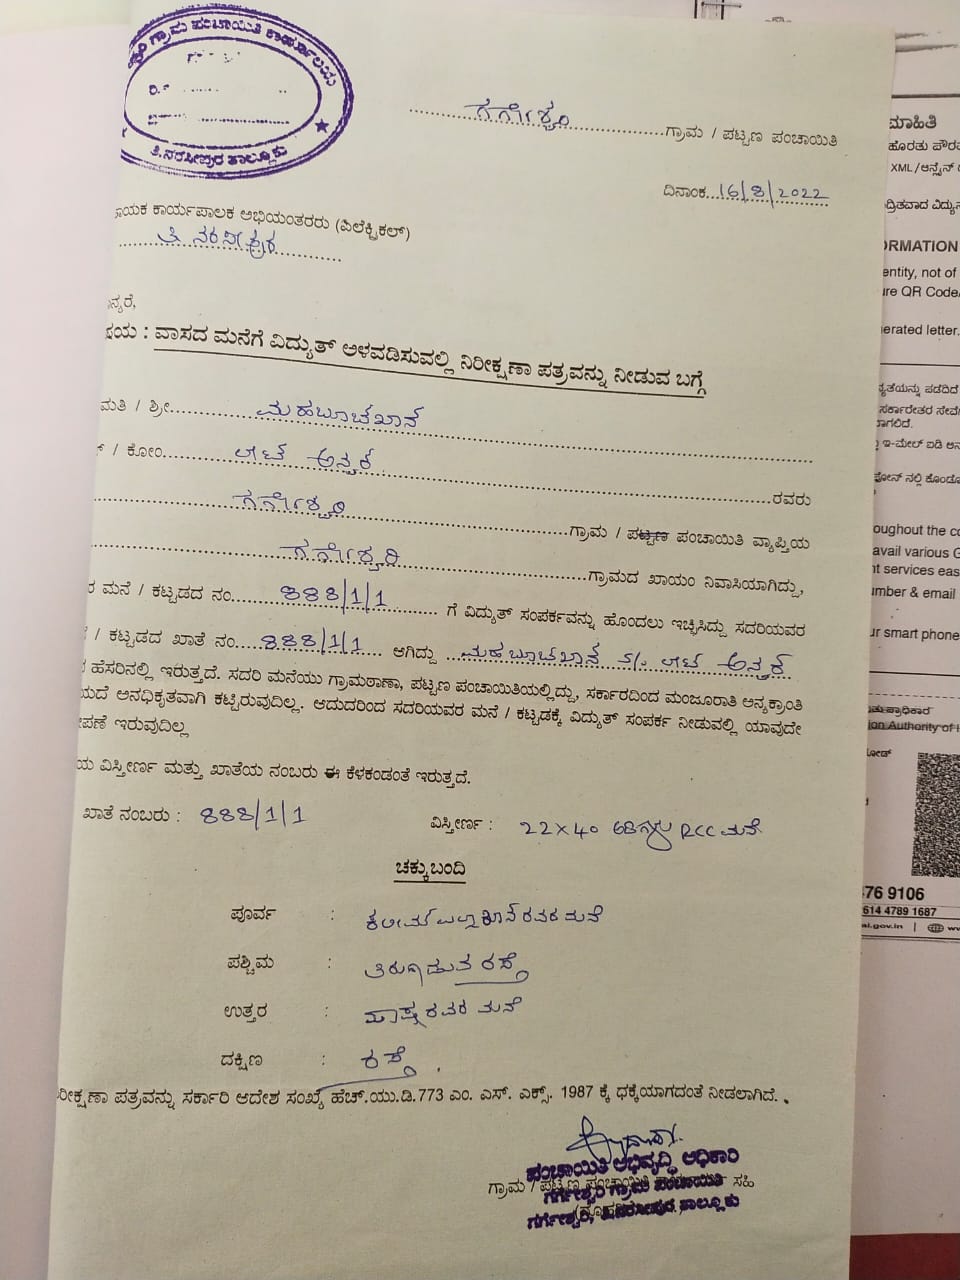 ಗ್ರಾಮ ಪಂಚಾಯಿತಿ ಕಾರ್ಯಾಲಯ
ತಿ.ನರಸೀಪುರ ತಾಲ್ಲೂಕು
ಗರ್ಗೇಶ್ವರಿ ಗ್ರಾಮ / ಪಟ್ಟಣ ಪಂಚಾಯಿತಿ
ದಿನಾಂಕ 16/8/2022
ಾಯಕ ಕಾರ್ಯಪಾಲಕ ಅಭಿಯಂತರರು (ಎಲೆಕ್ಟ್ರಿಕಲ್)
ತಿ ನರಸೀಪುರ
ನ್ಯರೆ,
ಷಯ : ವಾಸದ ಮನೆಗೆ ವಿದ್ಯುತ್ ಅಳವಡಿಸುವಲ್ಲಿ ನಿರೀಕ್ಷಣಾ ಪತ್ರವನ್ನು ನೀಡುವ ಬಗ್ಗೆ
ಮತಿ / ಶ್ರೀ ಮಹಬೂಬ್‌ಖಾನ್
/ ಕೋಂ ಲೇಟ್ ಅನ್ವರ್ ರವರು
ಗರ್ಗೇಶ್ವರಿ ಗ್ರಾಮ / ಪಟ್ಟಣ ಪಂಚಾಯಿತಿ ವ್ಯಾಪ್ತಿಯ
ಗರ್ಗೇಶ್ವರಿ ಗ್ರಾಮದ ಖಾಯಂ ನಿವಾಸಿಯಾಗಿದ್ದು,
ರ ಮನೆ / ಕಟ್ಟಡದ ನಂ. 888/1/1 ಗೆ ವಿದ್ಯುತ್ ಸಂಪರ್ಕವನ್ನು ಹೊಂದಲು ಇಚ್ಛಿಸಿದ್ದು ಸದರಿಯವರ
/ ಕಟ್ಟಡದ ಖಾತೆ ನಂ. 888/1/1 ಆಗಿದ್ದು ಮಹಬೂಬ್‌ಖಾನ್ S/o ಲೇಟ್ ಅನ್ವರ್
ಹೆಸರಿನಲ್ಲಿ ಇರುತ್ತದೆ. ಸದರಿ ಮನೆಯು ಗ್ರಾಮಠಾಣಾ, ಪಟ್ಟಣ ಪಂಚಾಯಿತಿಯಲ್ಲಿದ್ದು, ಸರ್ಕಾರದಿಂದ ಮಂಜೂರಾತಿ ಅನ್ಯಕ್ರಾಂತಿ
ಯದೆ ಅನಧಿಕೃತವಾಗಿ ಕಟ್ಟಿರುವುದಿಲ್ಲ. ಆದುದರಿಂದ ಸದರಿಯವರ ಮನೆ / ಕಟ್ಟಡಕ್ಕೆ ವಿದ್ಯುತ್ ಸಂಪರ್ಕ ನೀಡುವಲ್ಲಿ ಯಾವುದೇ
ೇಪಣೆ ಇರುವುದಿಲ್ಲ
ಯ ವಿಸ್ತೀರ್ಣ ಮತ್ತು ಖಾತೆಯ ನಂಬರು ಈ ಕೆಳಕಂಡಂತೆ ಇರುತ್ತದೆ.
ಖಾತೆ ನಂಬರು : 888/1/1 ವಿಸ್ತೀರ್ಣ : 22x40 ಅಡಿಗಳು RCC ಮನೆ
ಚಕ್ಕುಬಂದಿ
ಪೂರ್ವ : ಕಲೀಮ್‌ಉಲ್ಲಾಖಾನ್ ರವರ ಮನೆ
ಪಶ್ಚಿಮ : ತಿರುಗಾಡುವ ರಸ್ತೆ
ಉತ್ತರ : ರವರ ಮನೆ
ದಕ್ಷಿಣ : ರಸ್ತೆ
ರೀಕ್ಷಣಾ ಪತ್ರವನ್ನು ಸರ್ಕಾರಿ ಆದೇಶ ಸಂಖ್ಯೆ ಹೆಚ್.ಯು.ಡಿ.773 ಎಂ. ಎಸ್. ಎಕ್ಸ್. 1987 ಕ್ಕೆ ಧಕ್ಕೆಯಾಗದಂತೆ ನೀಡಲಾಗಿದೆ.
ಪಂಚಾಯಿತಿ ಅಭಿವೃದ್ಧಿ ಅಧಿಕಾರಿ
ಗ್ರಾಮ / ಪಟ್ಟಣ ಪಂಚಾಯಿತಿ ಸಹಿ
ಗರ್ಗೇಶ್ವರಿ ಗ್ರಾಮ ಪಂಚಾಯಿತಿ
ಗರ್ಗೇಶ್ವರಿ, ತಿ.ನರಸೀಪುರ ತಾಲ್ಲೂಕು
ಮಾಹಿತಿ
ಹೊರತು ಪೌರ
XML/ಆನ್‌ಲೈನ್
ದ್ರಿತವಾದ ವಿದ್ಯು
ORMATION
entity, not of
ure QR Code/
erated letter.
oughout the co
avail various G
nt services eas
umber & email
ur smart phone
ion Authority of I
76 9106
614 4789 1687
ai.gov.in | ww